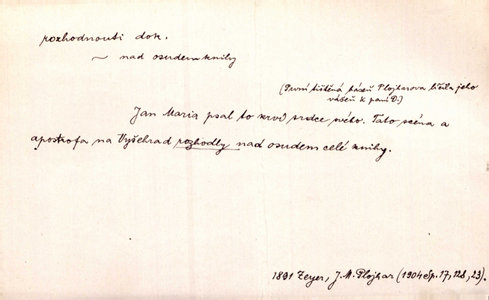 rozhodnouti dok.
~ nad osudem knihy
(První tištěná báseň Plojharova líčila jeho
vášeň k paní D.)
Jan Maria psal to krví srdce svého. Tato scéna a
apostrofa na Vyšehrad rozhodly nad osudem celé knihy.
1891 Zeyer, J. M. Plojhar (1904 sp. 17, 128, 23).